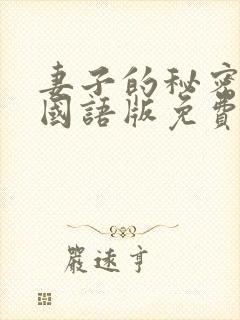 妻子的秘密
國語版免費
嚴遠亨